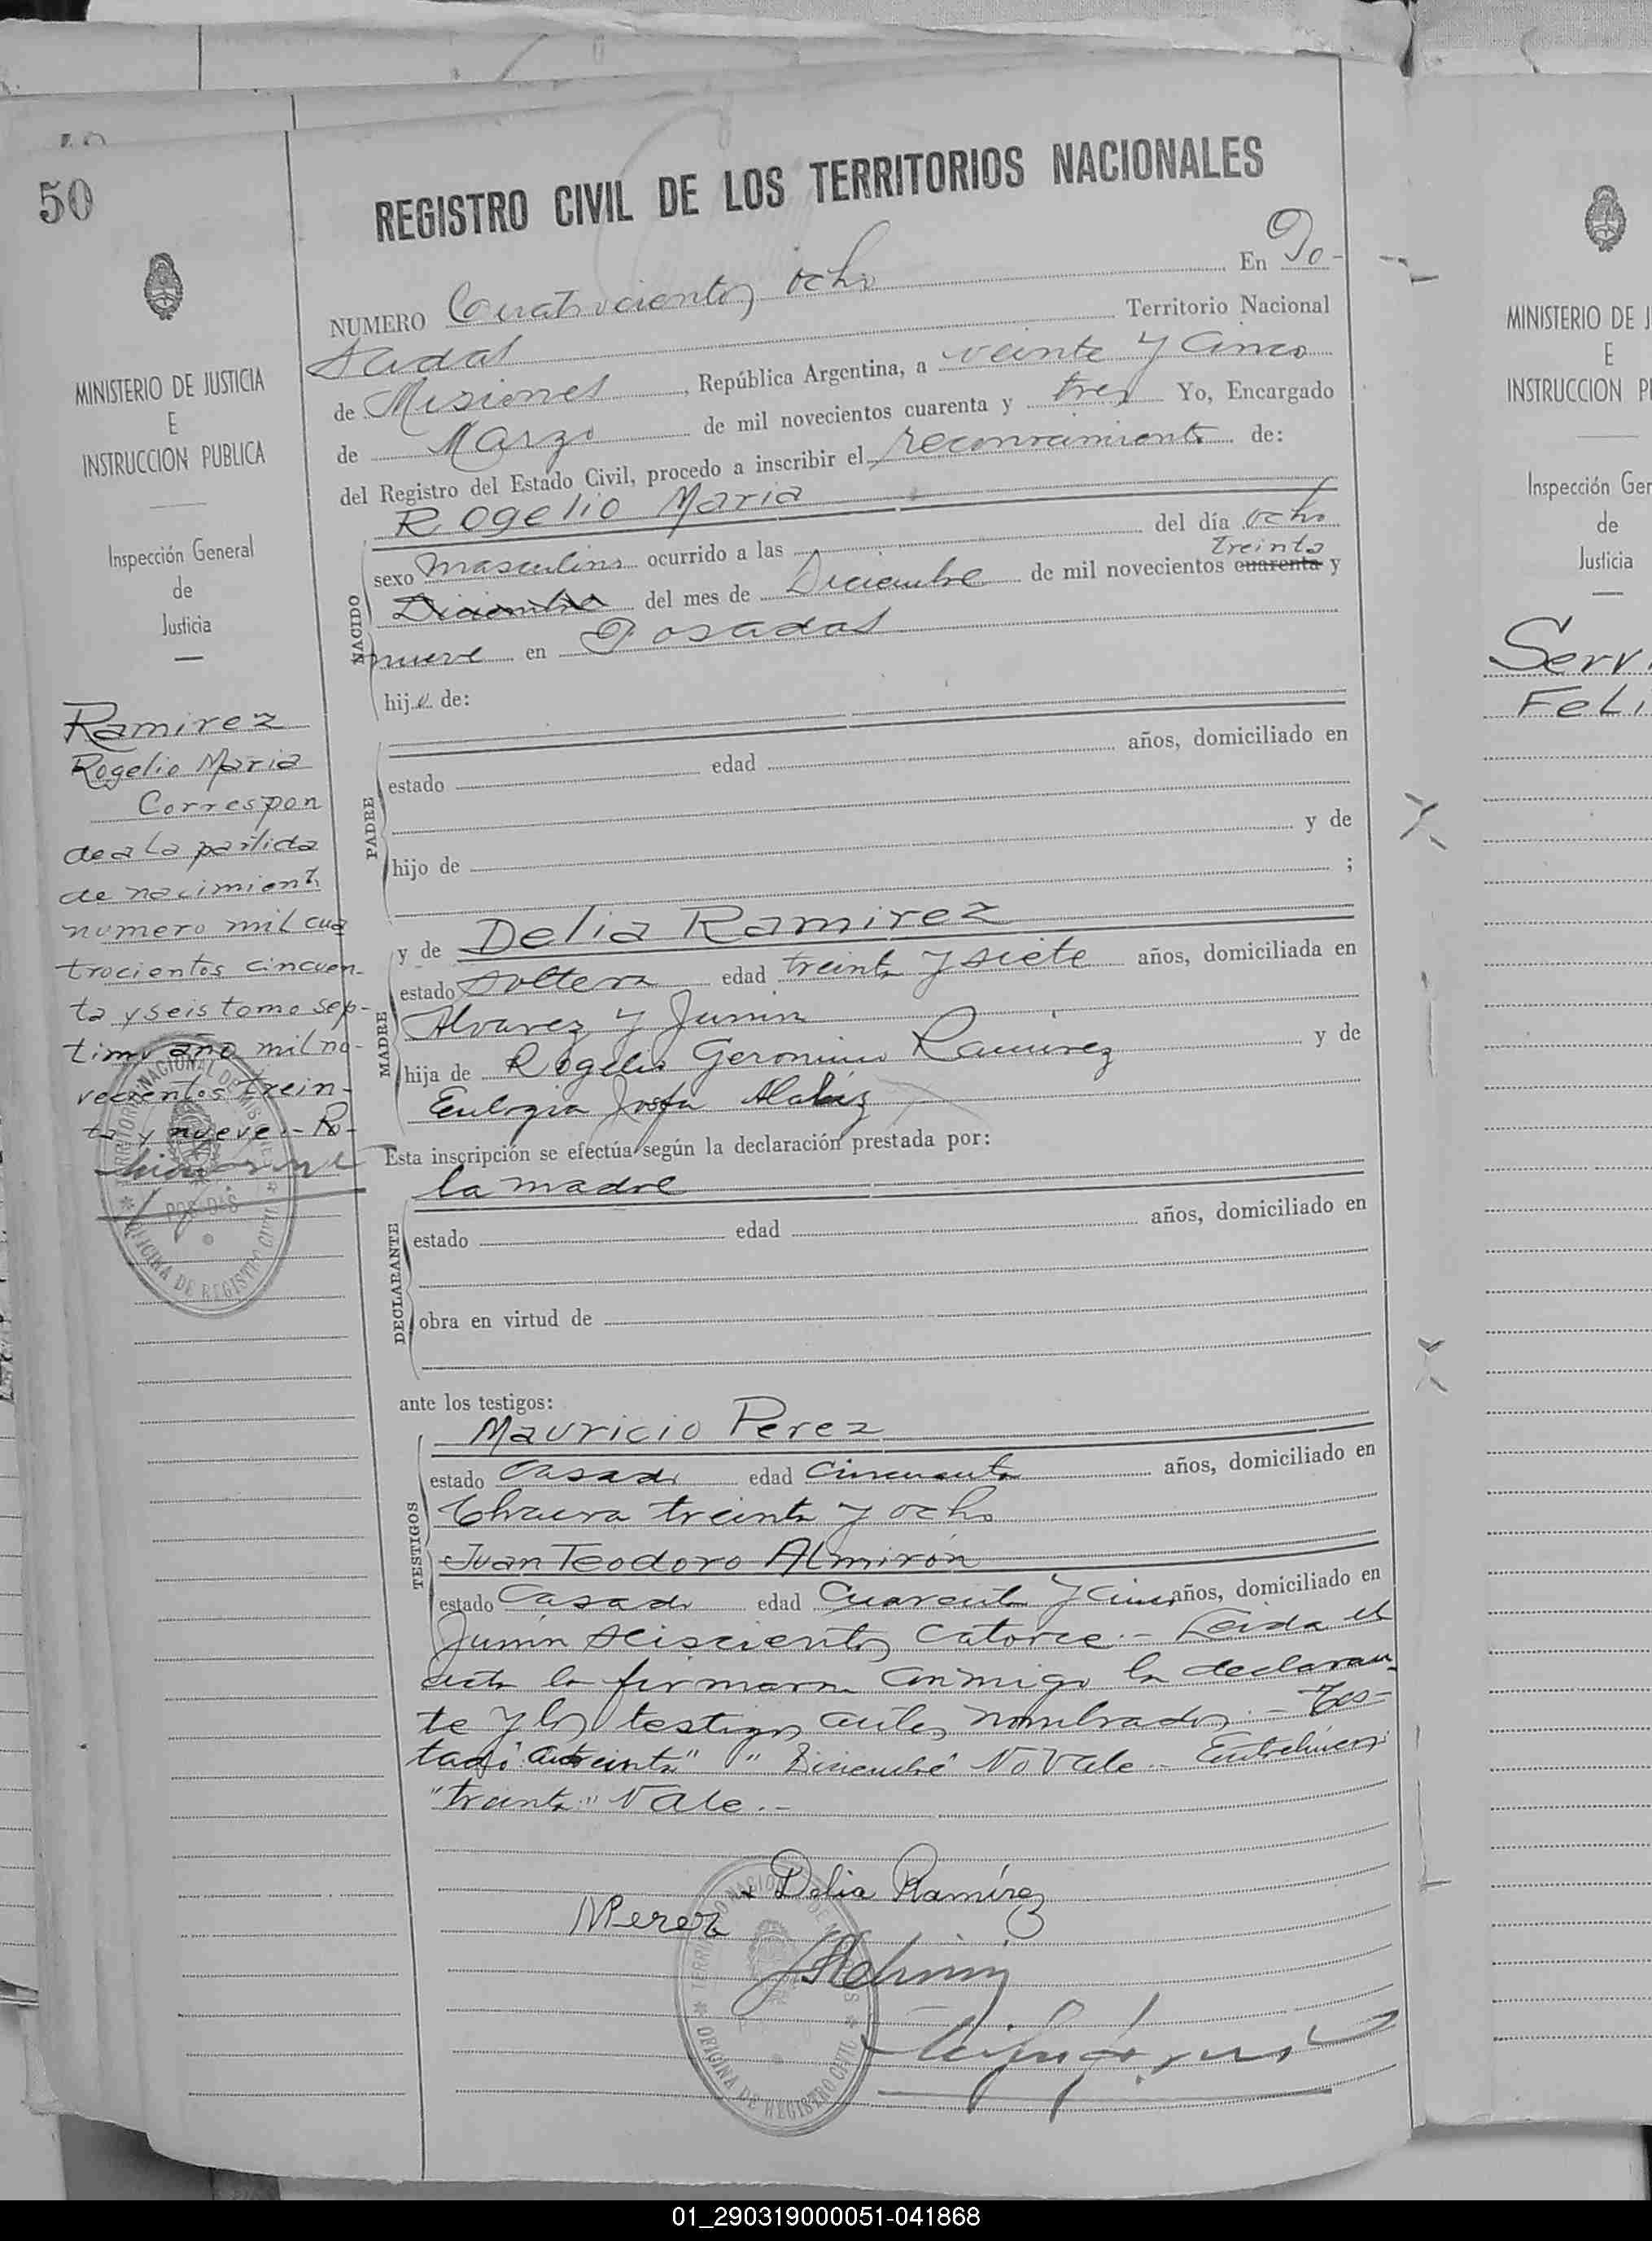 50
MINISTERIO DE JUSTICIA
E
INSTRUCCION PUBLICA
Inspección General
de
Justicia
Ramirez
Rogelio Maria
Correspon
de a la partida
de nacimient
numero mil cua
trocientos cincuen-
ta y seis tomo sep-
timo año mil no-
vecientos trein-
ta y nueve.-
REGISTRO CIVIL DE LOS TERRITORIOS NACIONALES
NUMERO Cuatrocientos ocho En Po-
sadas Territorio Nacional
de Misiones, República Argentina, a veinte y cinco
de Marzo de mil novecientos cuarenta y tres Yo, Encargado
del Registro del Estado Civil, procedo a inscribir el reconocimiento de:
Rogelio Maria
NACIDO
sexo masculino ocurrido a las del día ocho
treinta
Diciembre del mes de Diciembre de mil novecientos cuarenta y
nueve en Posadas
hijo de:
PADRE
estado edad años, domiciliado en
hijo de y de
;
MADRE
y de Delia Ramirez
estado soltera edad treinta y siete años, domiciliada en
Alvarez y Junin
hija de Rogelio Geronimo Ramirez y de
Eulogia Josefa
Esta inscripción se efectúa según la declaración prestada por:
DECLARANTE
la madre
estado edad años, domiciliado en
obra en virtud de
ante los testigos:
TESTIGOS
Mauricio Perez
estado casado edad cincuenta años, domiciliado en
treinta y ocho
Juan Teodoro Almirón
estado casado edad cuarenta y cinco años, domiciliado en
Junin seiscientos catorce.- Leida el
acta la firmaron conmigo la declaran-
te y los testigos antes nombrados.- Tes-
tado: "Diciembre" No Vale.- Entrelineas:
"treinta" Vale.-
Delia Ramírez
MPerez
TERRITORIO NACIONAL DE MISIONES
OFICINA DE REGISTRO CIVIL
POSADAS
MINISTERIO DE J
E
INSTRUCCION P
Inspección Ger
de
Justicia
Serv
Feli
01_290319000051-041868